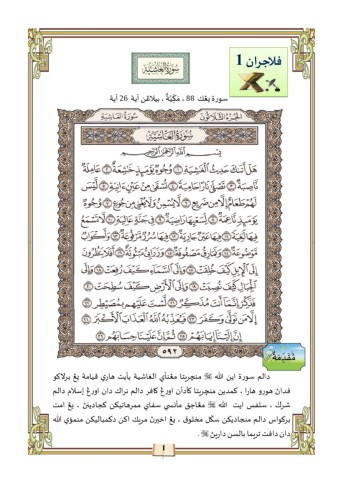 فلاجران 1
سورة الغاشية
سورة يغك 88 ، مكيّة ، بيلاڠن أية 26 أية
الجزء الثلاثون
سورة الغاشية
سورة الغاشية
بسم الله الرحمن الرحيم
هَلْ أَتَىٰكَ حَدِيثُ الْغَٰشِيَةِ ۝١ وُجُوهٌ يَوْمَئِذٍ خَٰشِعَةٌ ۝٢ عَامِلَةٌ
نَّاصِبَةٌ ۝٣ تَصْلَىٰ نَارًا حَامِيَةً ۝٤ تُسْقَىٰ مِنْ عَيْنٍ ءَانِيَةٍ ۝٥ لَّيْسَ
لَهُمْ طَعَامٌ إِلَّا مِن ضَرِيعٍ ۝٦ لَّا يُسْمِنُ وَلَا يُغْنِى مِن جُوعٍ ۝٧ وُجُوهٌ
يَوْمَئِذٍ نَّاعِمَةٌ ۝٨ لِّسَعْيِهَا رَاضِيَةٌ ۝٩ فِى جَنَّةٍ عَالِيَةٍ ۝١٠ لَّا تَسْمَعُ
فِيهَا لَٰغِيَةً ۝١١ فِيهَا عَيْنٌ جَارِيَةٌ ۝١٢ فِيهَا سُرُرٌ مَّرْفُوعَةٌ ۝١٣ وَأَكْوَابٌ
مَّوْضُوعَةٌ ۝١٤ وَنَمَارِقُ مَصْفُوفَةٌ ۝١٥ وَزَرَابِىُّ مَبْثُوثَةٌ ۝١٦ أَفَلَا يَنظُرُونَ
إِلَى الْإِبِلِ كَيْفَ خُلِقَتْ ۝١٧ وَإِلَى السَّمَاءِ كَيْفَ رُفِعَتْ ۝١٨ وَإِلَى
الْجِبَالِ كَيْفَ نُصِبَتْ ۝١٩ وَإِلَى الْأَرْضِ كَيْفَ سُطِحَتْ ۝٢٠
فَذَكِّرْ إِنَّمَا أَنتَ مُذَكِّرٌ ۝٢١ لَّسْتَ عَلَيْهِم بِمُصَيْطِرٍ ۝٢٢
إِلَّا مَن تَوَلَّىٰ وَكَفَرَ ۝٢٣ فَيُعَذِّبُهُ اللَّهُ الْعَذَابَ الْأَكْبَرَ ۝٢٤
إِنَّ إِلَيْنَا إِيَابَهُمْ ۝٢٥ ثُمَّ إِنَّ عَلَيْنَا حِسَابَهُم ۝٢٦
٥٩٢
مُقَدِّمَة
دالم سورة اين الله ﷻ منچريتا مڠنأي الغاشية يأيت هاري قيامة يڠ برلاكو
فدان هورو هارا ، كمدين منچريتا كأدأن اورڠ كافر دالم نراك دان اورڠ إسلام دالم
شرك ، سلفس ايت الله ﷻ مڠاجق مأنسي سفاي ممرهاتيكن كجادين ، يڠ امت
براڬم دالم منجاديكن سݢل مخلوق ، يڠ اخيرن مريك اكن دكمباليكن منموءي الله
دان دافت تريما بالسن درين ﷻ .
1